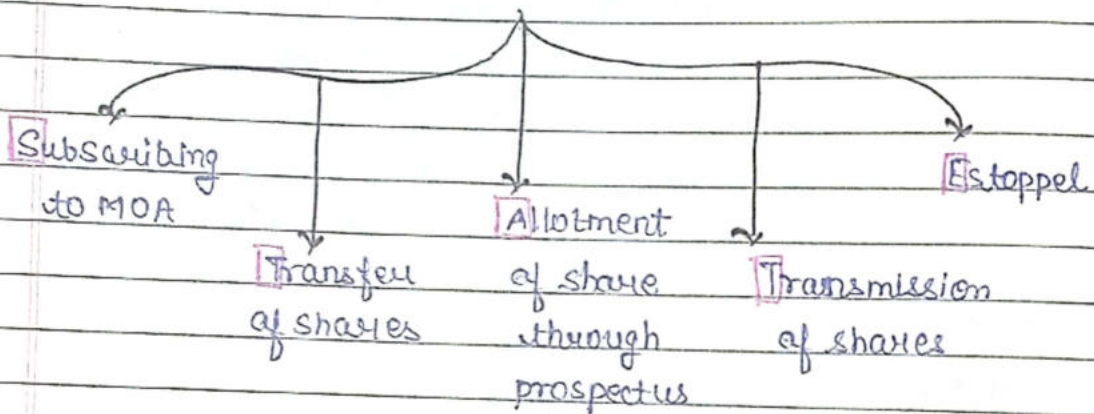 Subscribing
to MOA
Transfer
of shares
Allotment
of share
through
prospectus
Transmission
of shares
Estoppel